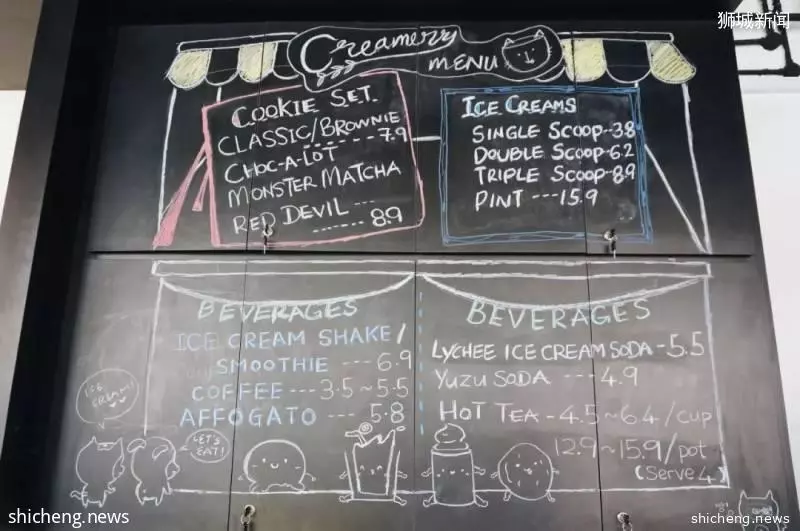 狮城新闻
Creamery
MENU
COOKIE SET.
CLASSIC/BROWNIE
------- 7.9
CHOC-A-LOT
MONSTER MATCHA
RED DEVIL ---
------- 8.9
ICE CREAMS
SINGLE SCOOP--3.8
DOUBLE SCOOP--6.2
TRIPLE SCOOP--8.9
PINT ---15.9
BEVERAGES
ICE CREAM SHAKE/
SMOOTHIE --- 6.9
COFFEE---3.5~5.5
AFFOGATO --- 5.8
BEVERAGES
LYCHEE ICE CREAM SODA-5.5
YUZU SODA ---4.9
HOT TEA -4.5~6.4/cup
12.9~15.9/pot
(Serve 4)
ICE CREAM!
LET'S EAT!
shicheng.news
shicheng.news